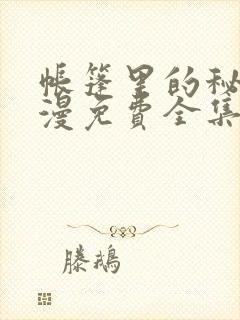 帐篷里的秘
漫免费全集
滕鹅